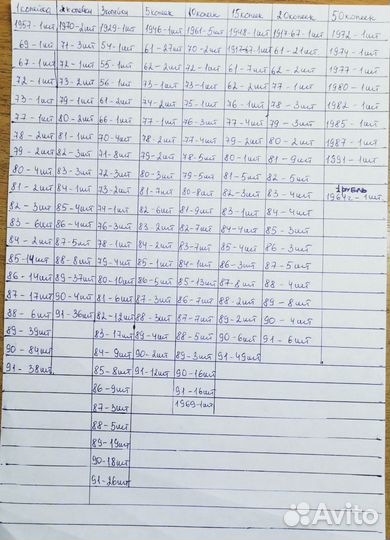 1 копейка 2 копейки 3 копейки 5 копеек 10 копеек 15 копеек 20 копеек 50 копеек
1957-1шт 1970-2шт 1929-1шт 1946-1шт 1961-5шт 1948-1шт 1917-67-1шт 1972-1шт
69-1шт 71-3шт 54-1шт 61-27шт 70-2шт 1917-67-1шт 61-21шт 1974-1шт
67-1шт 72-1шт 55-1шт 62-2шт 72-1шт 61-7шт 62-2шт 1977-1шт
72-1шт 73-2шт 56-1шт 73-1шт 73-1шт 62-2шт 77-1шт 1980-1шт
73-1шт 79-1шт 61-2шт 74-2шт 75-1шт 76-1шт 78-3шт 1982-1шт
77-1шт 80-2шт 66-1шт 77-1шт 76-3шт 77-4шт 79-3шт 1985-1шт
78-2шт 81-1шт 70-4шт 78-2шт 77-4шт 79-2шт 80-2шт 1987-1шт
79-2шт 82-3шт 71-8шт 79-2шт 78-5шт 80-1шт 81-9шт 1991-1шт
80-4шт 83-3шт 72-3шт 80-3шт 79-5шт 81-5шт 82-5шт
81-2шт 84-1шт 73-2шт 81-7шт 80-8шт 82-3шт 83-4шт 1 рубль 1964г-1шт
82-3шт 85-4шт 74-1шт 82-6шт 81-9шт 83-1шт 84-4шт
83-6шт 86-4шт 76-3шт 83-2шт 82-7шт 84-4шт 85-3шт
84-2шт 87-5шт 78-1шт 84-2шт 83-7шт 85-4шт 86-3шт
85-14шт 88-8шт 79-4шт 85-1шт 84-1шт 86-3шт 87-5шт
86-14шт 89-37шт 80-10шт 86-5шт 85-13шт 87-8шт 88-4шт
87-17шт 90-4шт 81-6шт 87-3шт 86-7шт 88-2шт 89-8шт
88-6шт 91-36шт 82-12шт 88-3шт 87-7шт 89-2шт 90-4шт
89-39шт 83-17шт 89-4шт 88-5шт 90-6шт 91-6шт
90-84шт 84-9шт 90-2шт 89-3шт 91-49шт
91-38шт 85-8шт 91-12шт 90-16шт
86-9шт 91-16шт
87-3шт 1969-1шт
88-5шт
89-19шт
90-18шт
91-26шт
Avito